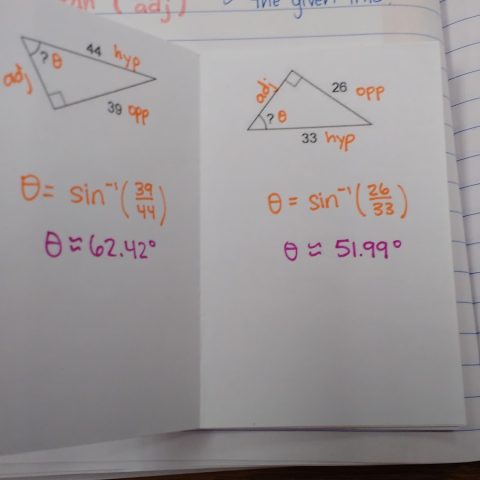 (adj)
the given
44 hyp
? θ
adj
39 opp
θ = sin⁻¹(39/44)
θ ≈ 62.42°
adj
26 opp
? θ
33 hyp
θ = sin⁻¹(26/33)
θ ≈ 51.99°